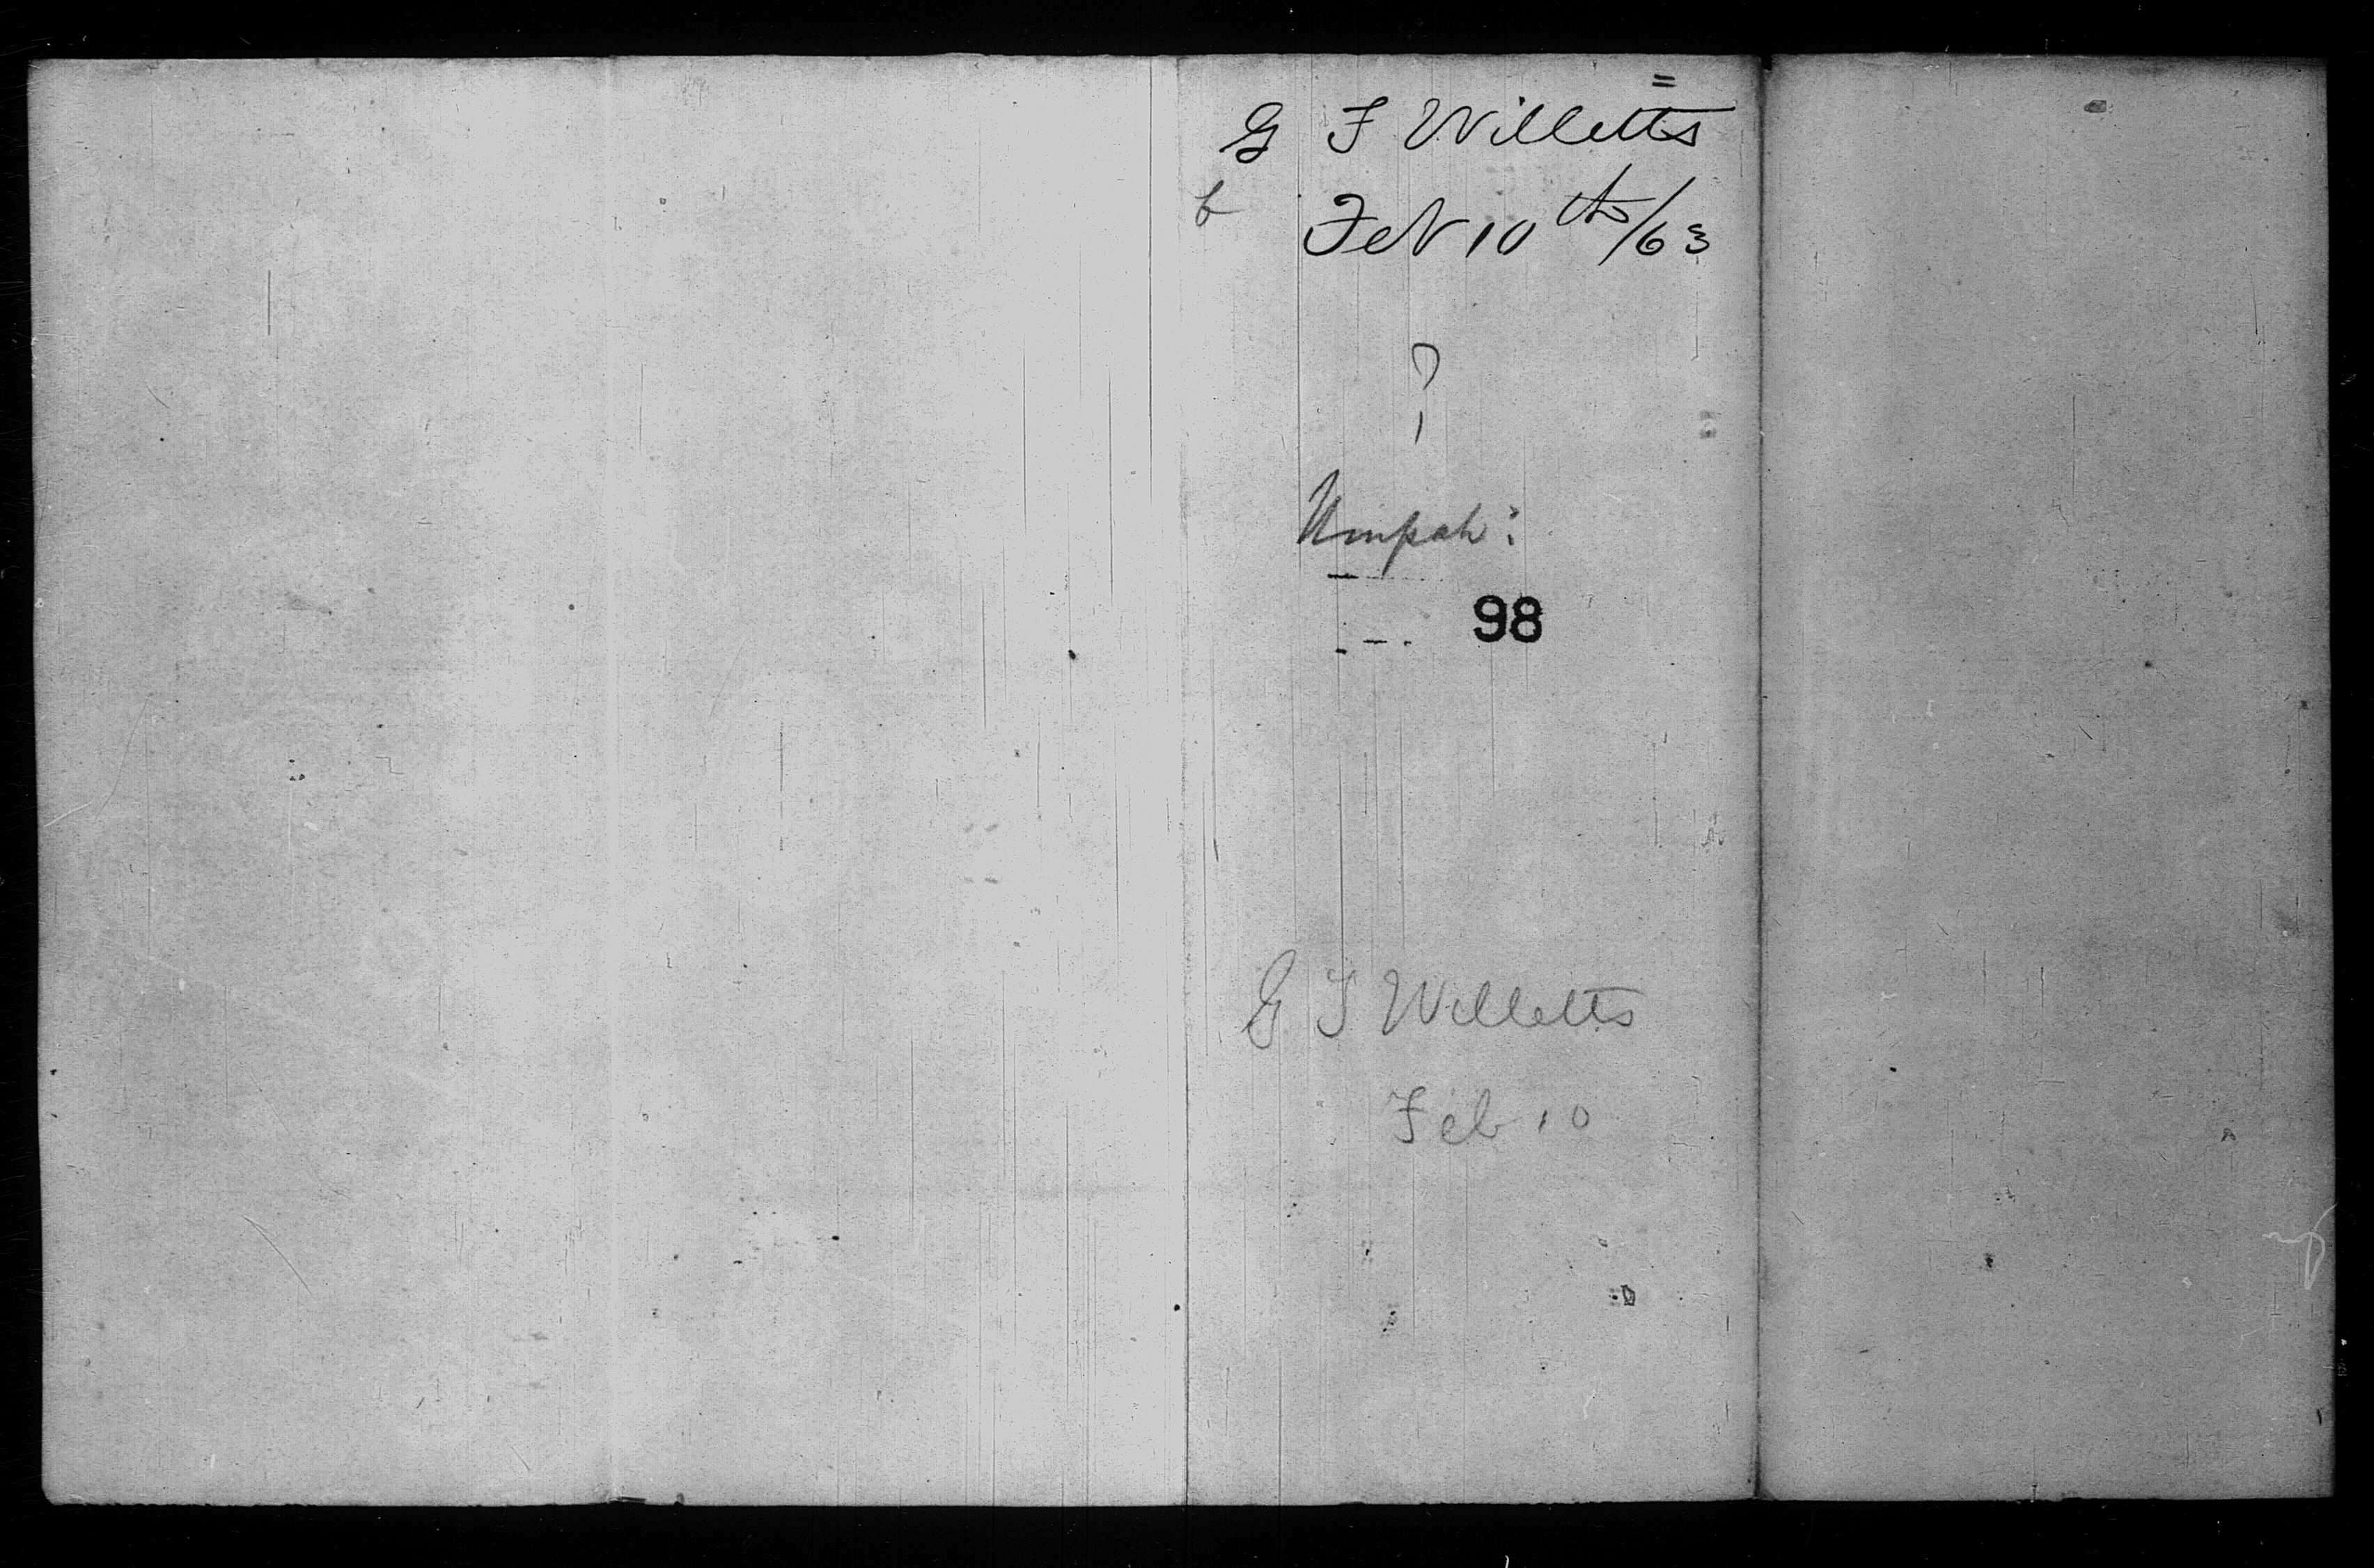 G F Willetts
b
Feb 10th/63
?
98
G F Willetts
Feb 10